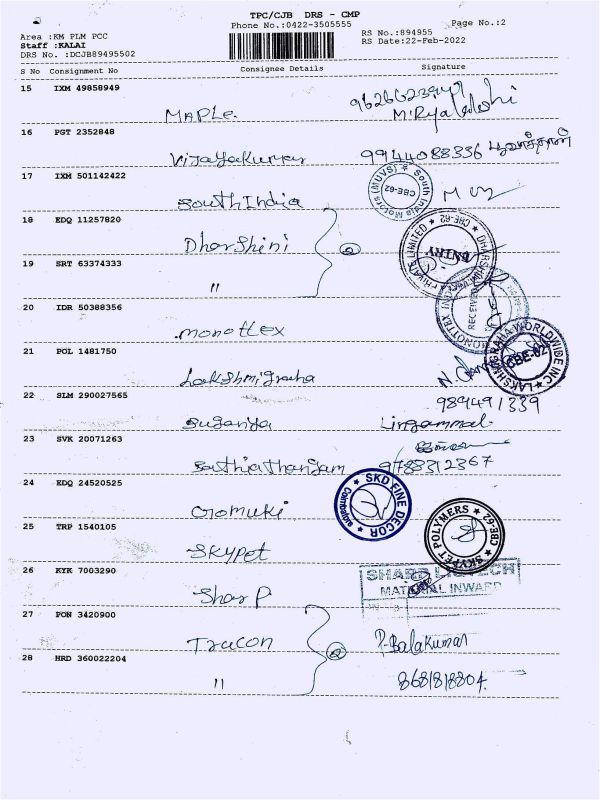 TPC/CJB DRS - CMP
Phone No.:0422-3505555
Page No.:2
Area :KM PLM PCC
RS No.:894955
Staff :KALAI
RS Date:22-Feb-2022
DRS No. :DCJB89495502
S No Consignment No Consignee Details Signature
15 IXM 49858949
Maple.
16 PGT 2352848
Vijayakumar 9944088336
17 IXM 501142422
South India Motors (MUVS) * CBE-62
South India
18 EDQ 11257820
Dharshini
DHARSHINI PRIVATE LIMITED * CBE-62 * ENTRY
19 SRT 63374333
"
20 IDR 50388356
monottex
RECEIVED
21 POL 1481750
Lakshmigraha
LAKSHMIGRAHA WORLDWIDE INC * CBE-62
22 SLM 290027565
9894491339
Suganya Lingammal
23 SVK 20071263
Sathiathangam 9788312367
24 EDQ 24520525
SKD FINE DECOR * Coimbatore
Gomuki
25 TRP 1540105
SKYPET POLYMERS * CBE-62
Skypet
26 KYK 7003290
MATERIAL INWARD
Sharp
27 PON 3420900
Tracon P. Balakumar
28 HRD 360022204
" 8681818804.